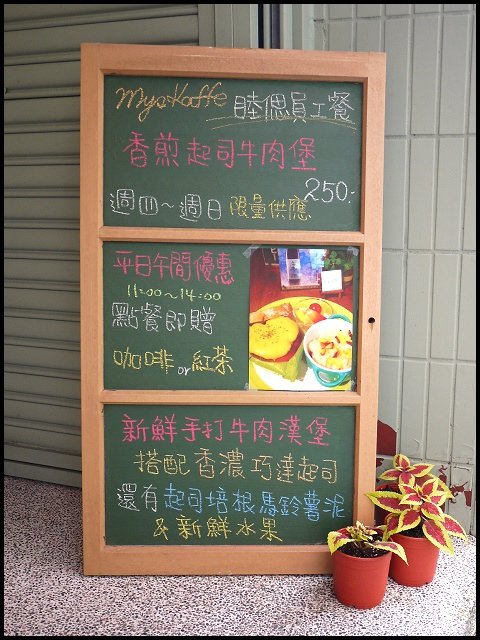 mysKaffe 睦偲員工餐
香煎起司牛肉堡
250.-
週四～週日 限量供應
平日午間優惠
11:00～14:00
點餐即贈
咖啡or紅茶
新鮮手打牛肉漢堡
搭配香濃巧達起司
還有起司培根馬鈴薯泥
& 新鮮水果